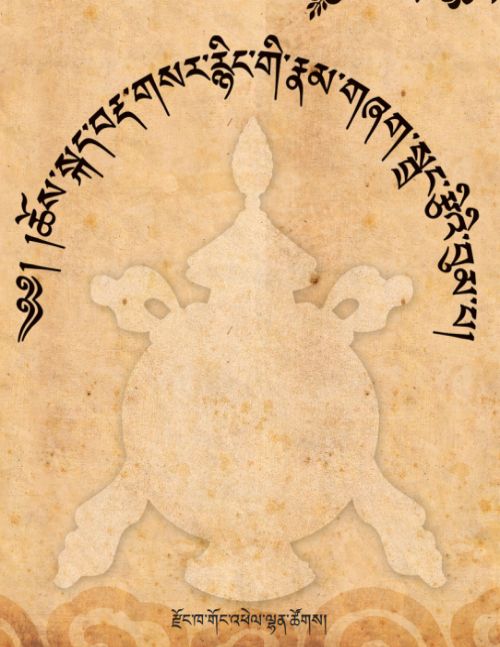 ༄༅། །ཆོས་སྐད་བརྡ་གསར་རྙིང་གི་རྣམ་གཞག་སྦྲང་རྩིའི་བུམ་པ།
རྫོང་ཁ་གོང་འཕེལ་ལྷན་ཚོགས།